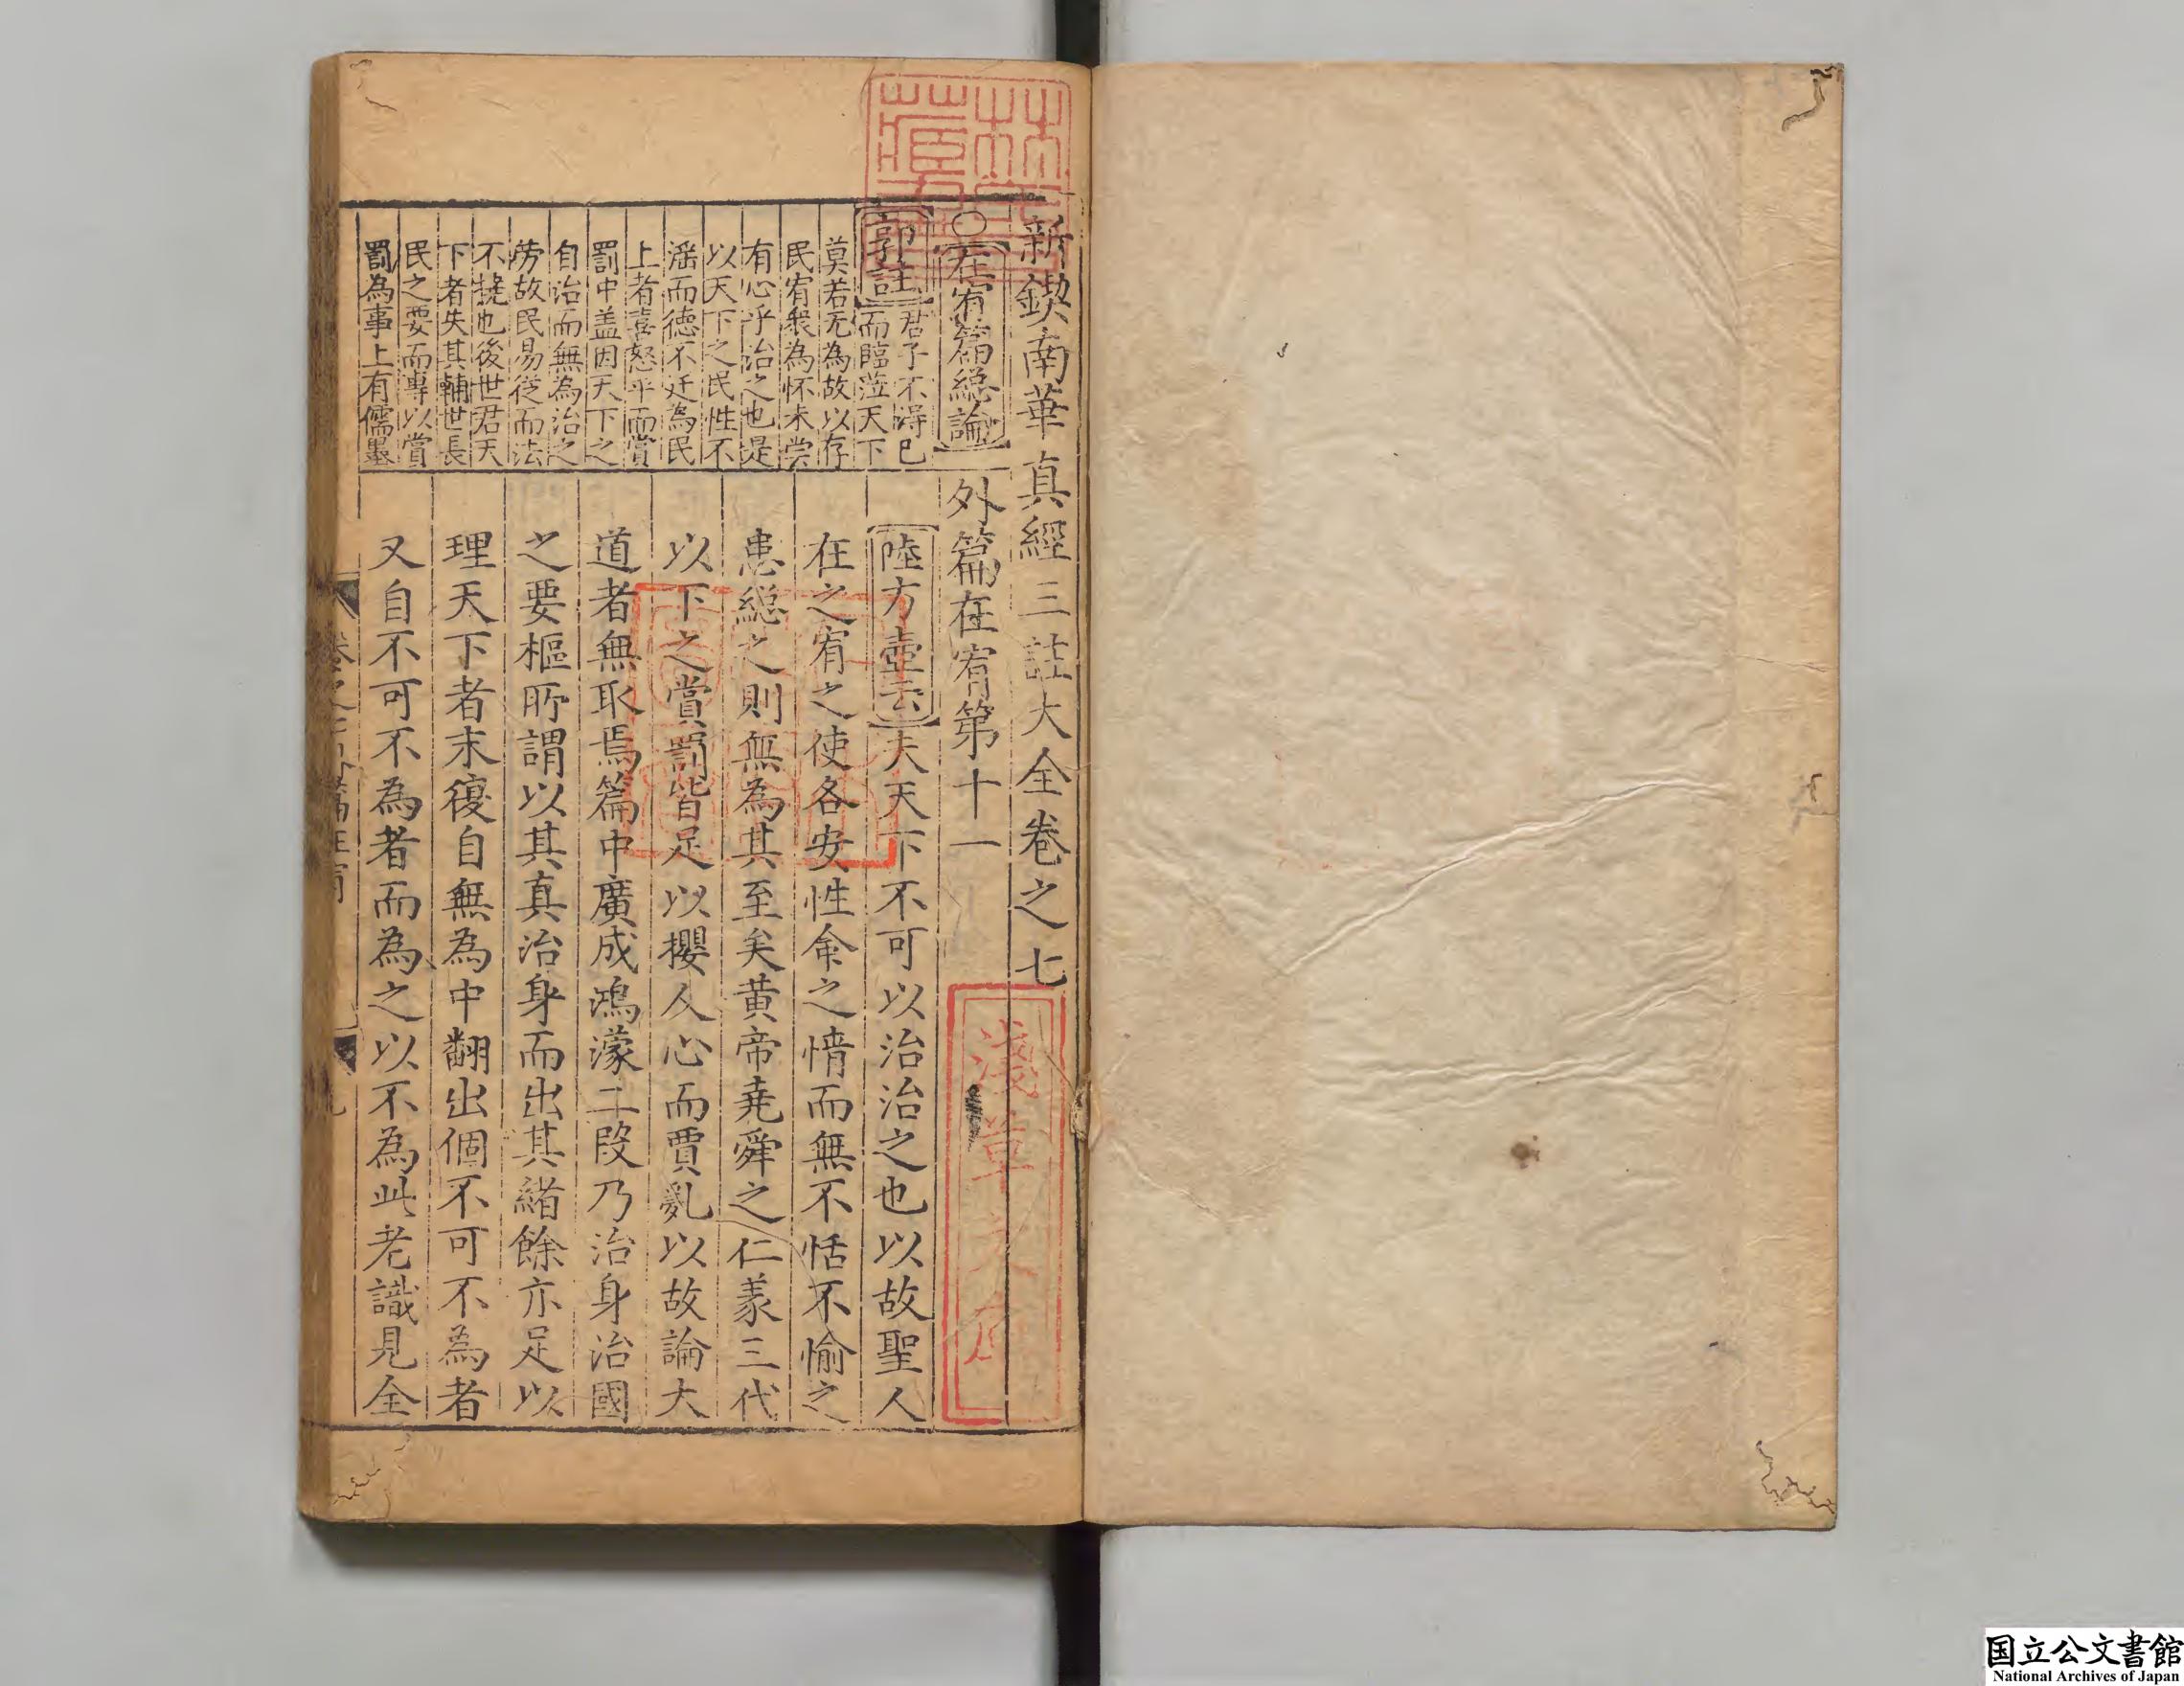 新鍥南華真經三註大全卷之七
○在宥篇總論
外篇在宥第十一
郭註
君子不得已
而臨蒞天下
莫若无為故以存
民宥衆為怀未尝
有心乎治之也是
以天下之民性不
滛而德不迁為民
上者喜怒平而賞
罰中盖因天下之
自治而無為治之
劳故民易從而法
不撓也後世君天
下者失其輔世長
民之要而專以賞
罰為事上有儒墨
陸方壺云夫天下不可以治治之也以故聖人
在之宥之使各安性命之情而無不恬不愉之
患總之則無為其至矣黃帝堯舜之仁義三代
以下之賞罰皆足以攖人心而賈亂以故論大
道者無取焉篇中廣成鴻濛二段乃治身治國
之要樞所謂以其真治身而出其緒餘亦足以
理天下者末復自無為中翻出個不可不為者
又自不可不為者而為之以不為此老識見全
淺草文庫
国立公文書館
National Archives of Japan